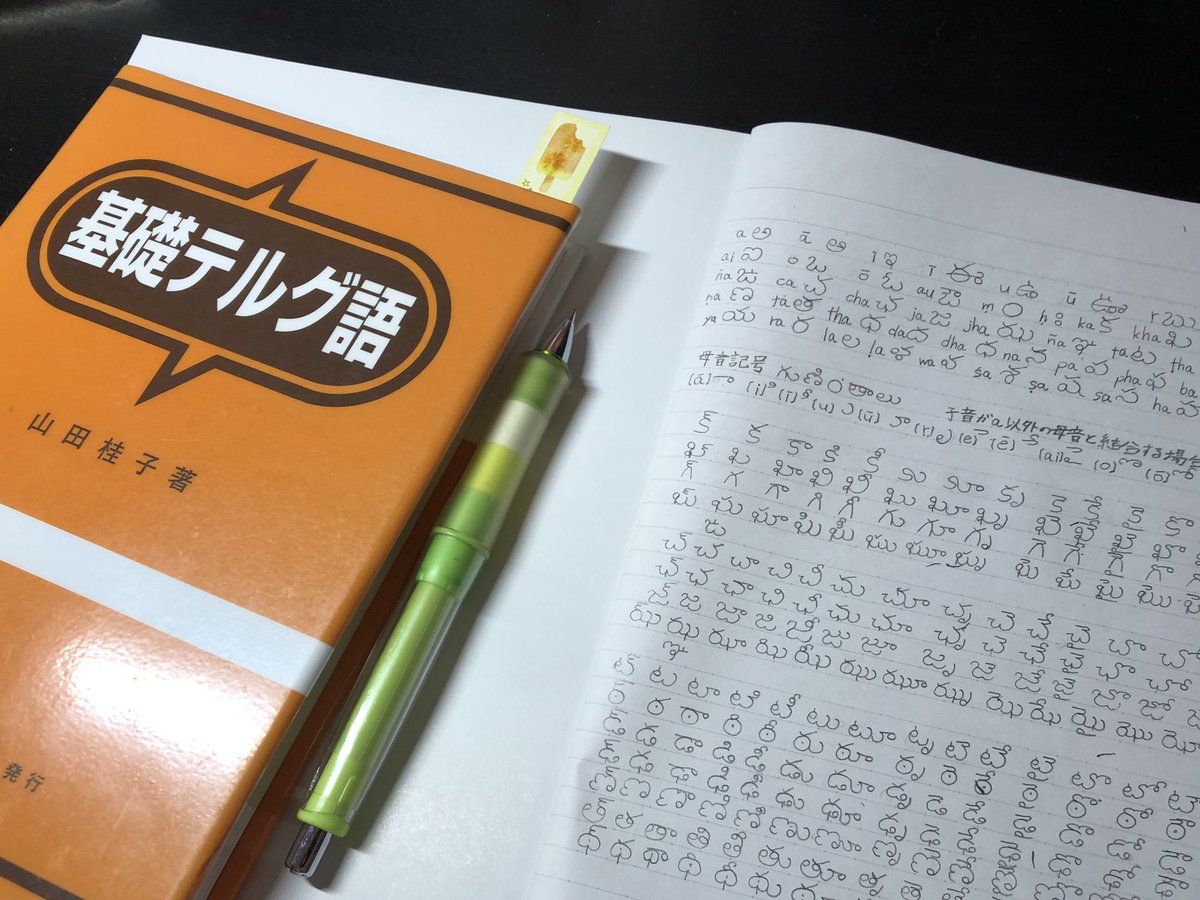 基礎テルグ語
山田桂子著
発行
a అ ā ఆ i ఇ ī ఈ u ఉ ū ఊ r ఋ
ai ఐ o ఒ ō ఓ au ఔ m ం h ః ka క kha ఖ
ṅa ఙ ca చ cha ఛ ja జ jha ఝ ña ఞ ta ట tha
na ణ ta త tha థ da ద dha ధ na న pa ప pha ఫ ba
ya య ra ర la ల la ళ wa వ sa శ ṣa ష sa స ha హ
母音記号 గుణింతాలు 子音がa以外の母音と結合する場合
(ā) ా (i) ి (ī) ీ (u) ు (ū) ూ (r) ృ (e) ె (ē) ే (ai) ై (o) ొ (ō) ో
క్ క కా కి కీ కు కూ కృ కె కే కై కొ
ఖ్ ఖ ఖా ఖి ఖీ ఖు ఖూ ఖృ ఖె ఖే ఖై ఖొ
గ్ గ గా గి గీ గు గూ గృ గె గే గై గొ గో
ఘ్ ఘ ఘా ఘి ఘీ ఘు ఘూ ఘృ ఘె ఘే ఘై ఘొ
ఙ
చ్ చ చా చి చీ చు చూ చృ చె చే చై చొ చో
ఛ్ ఛ ఛా ఛి ఛీ ఛు ఛూ ఛృ ఛె ఛే ఛై ఛొ ఛో
జ్ జ జా జి జీ జు జూ జృ జె జే జై జొ జో
ఝ్ ఝ ఝా ఝి ఝీ ఝు ఝూ ఝృ ఝె ఝే ఝై ఝొ ఝో
ఞ
ట్ ట టా టి టీ టు టూ టృ టె టే టై టొ టో
ఠ్ ఠ ఠా ఠి ఠీ ఠు ఠూ ఠృ ఠె
డ్ డ డా డి డీ డు డూ డృ డె డే
ఢ్ ఢ ఢా ఢి ఢీ ఢు ఢూ ఢృ
ణ్ ణ ణా ణి ణీ ణు ణూ ణృ
త్ త తా తి తీ తు తూ తృ
థ్ థ థా థి థీ థు థూ